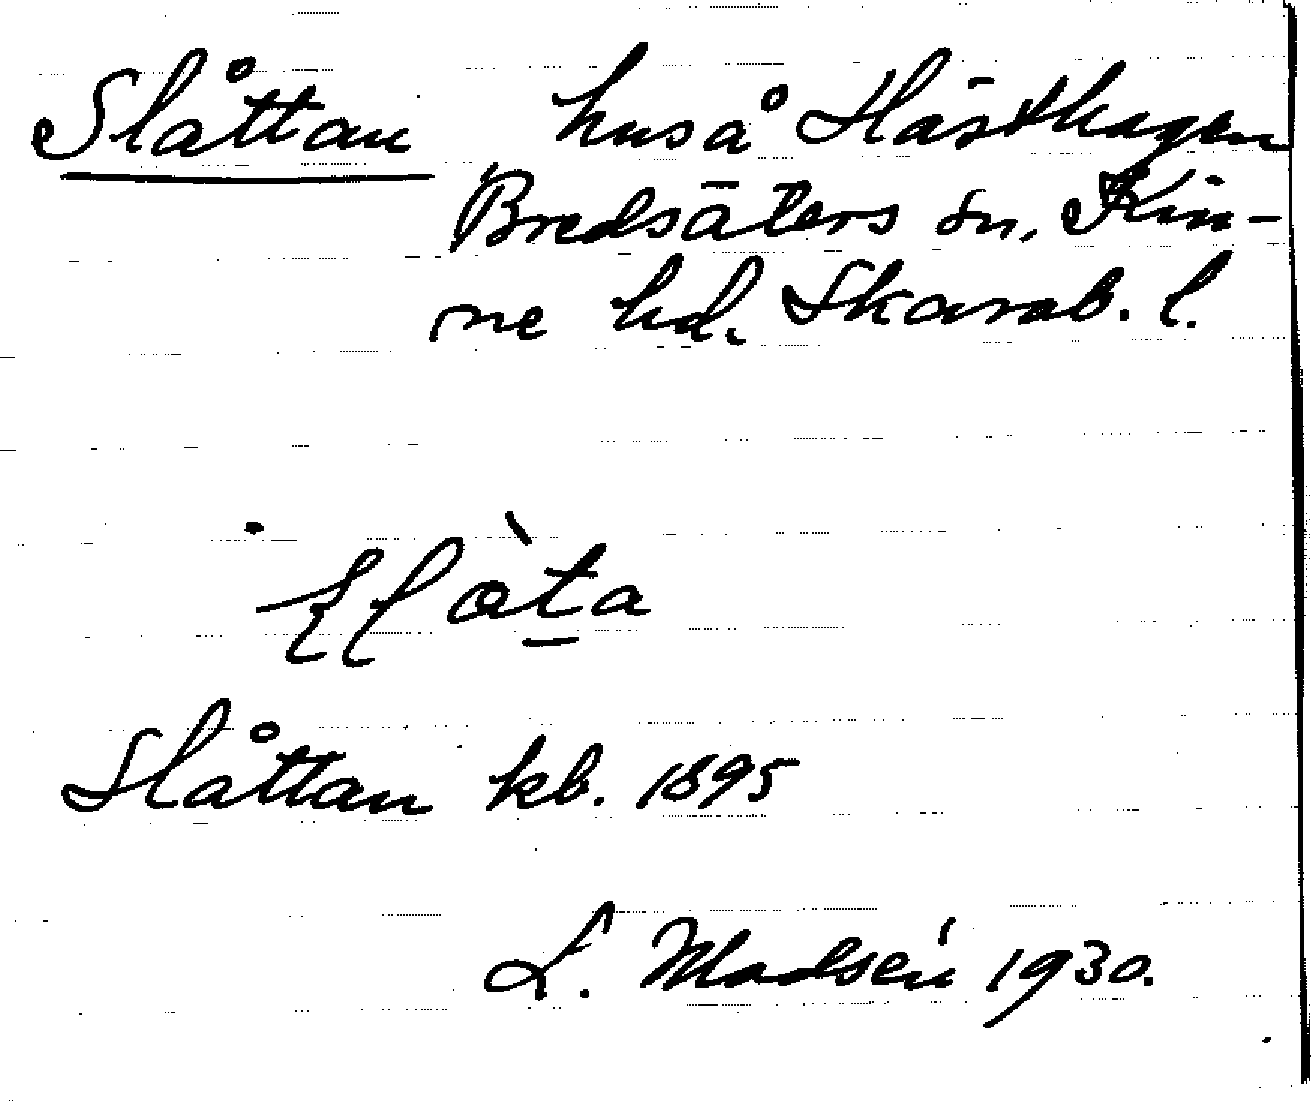 Slåttan hus å Hästhagen
Bredsäters sn, Kin-
ne hd. Skarab. l.
Slåttan kb. 1895
L. Modsén 1930.